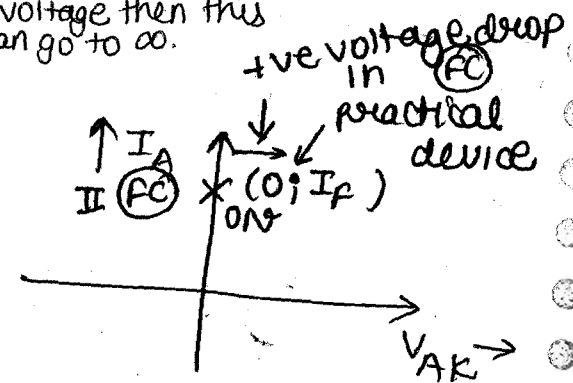 voltage then this
an go to ∞.
+ve voltage drop
in (FC)
practical
device
↑ I_A
II (FC) × (0; I_F)
ON
V_AK →